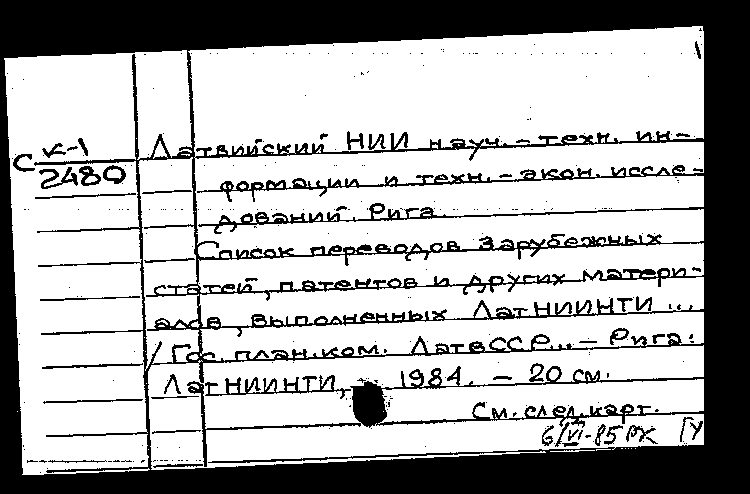 С К-1 Латвийский НИИ науч.-техн. ин-
2480
формации и техн.-экон. иссле-
дований. Рига.
Список переводов зарубежных
статей, патентов и других матери-
алов, выполненных ЛатНИИНТИ ...
/ Гос. план. ком. ЛатвССР... - Рига:
ЛатНИИНТИ, 1984. - 20 см.
См. след. карт.
6/VI-85